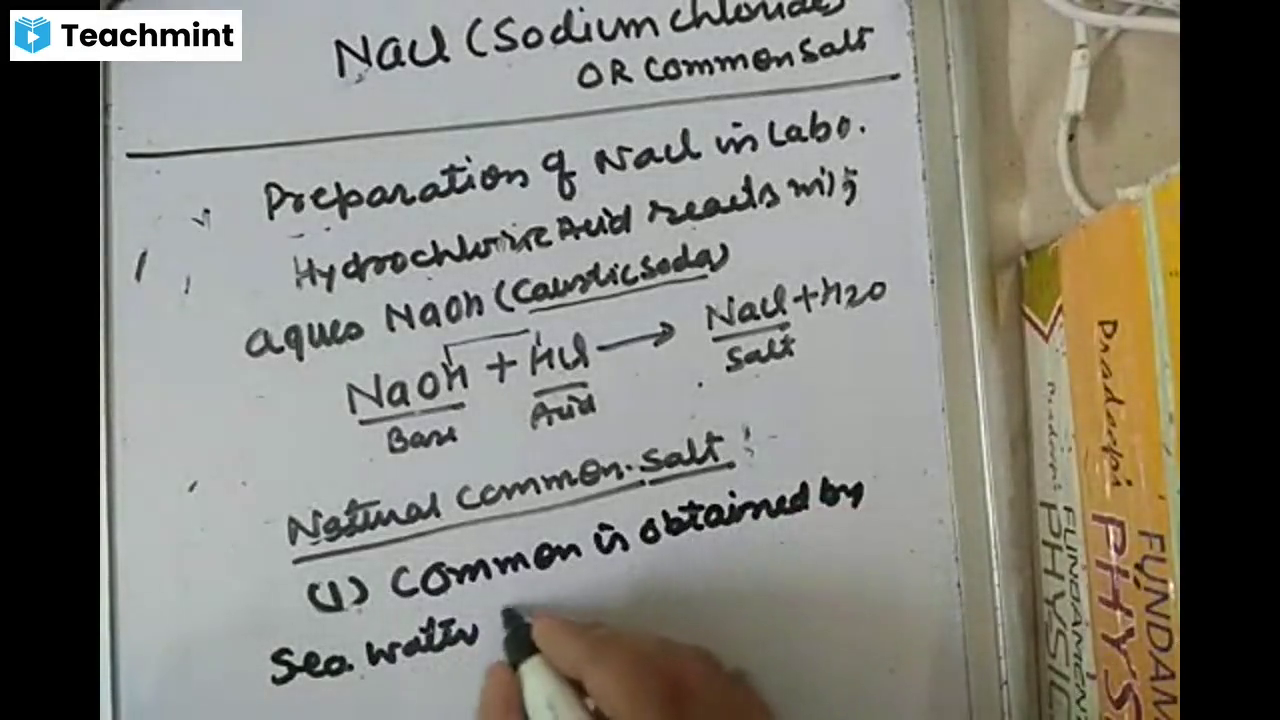 Teachmint
NaCl (Sodium chloride)
OR Common Salt
Preparation of NaCl in Labo.
Hydrochloric Acid reacts with
aques NaOh (Caustic soda)
NaOh + HCl → NaCl + H2O
Base Acid Salt
Natural common. salt :
(1) Common is obtained by
Sea water
Pradeep's
FUNDAMENT
PHYSIC
Pradeep's
FUNDAM
PHYS